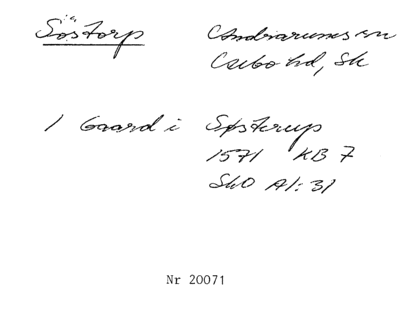 Söstorp Andrarums sn
Csebo hd, Sk
1 Gaard i Søsterup
1571 KB 7
SkO AI:31
Nr 20071